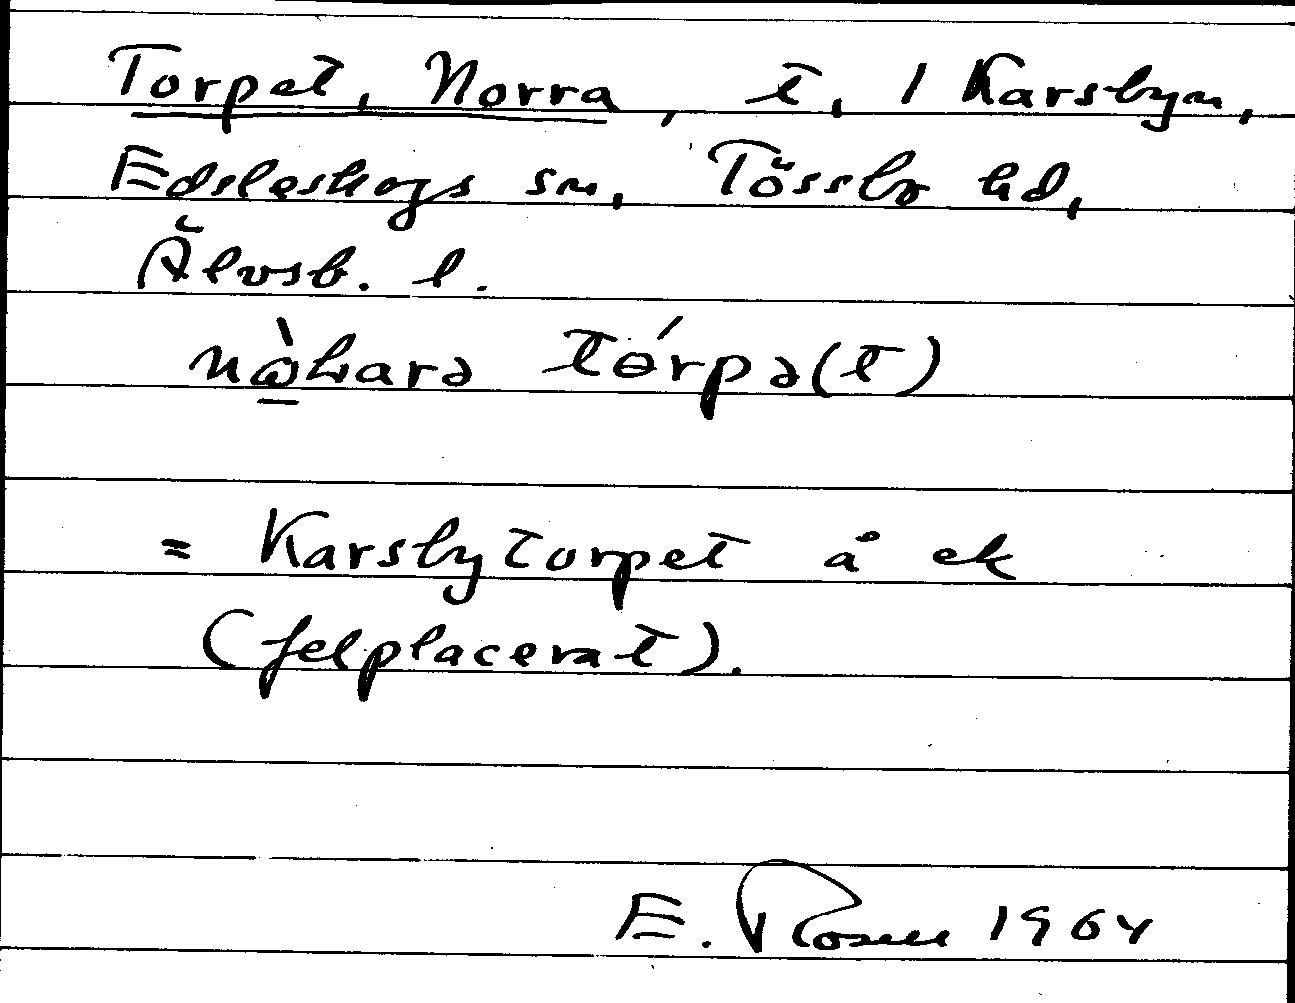 Torpet, Norra, t, i Karsbyn,
Edsleskogs sn, Tössbo hd,
Älvsb. l.
tórpə(t)
= Karsbytorpet å ek
(felplacerat).
E. Rosell 1964